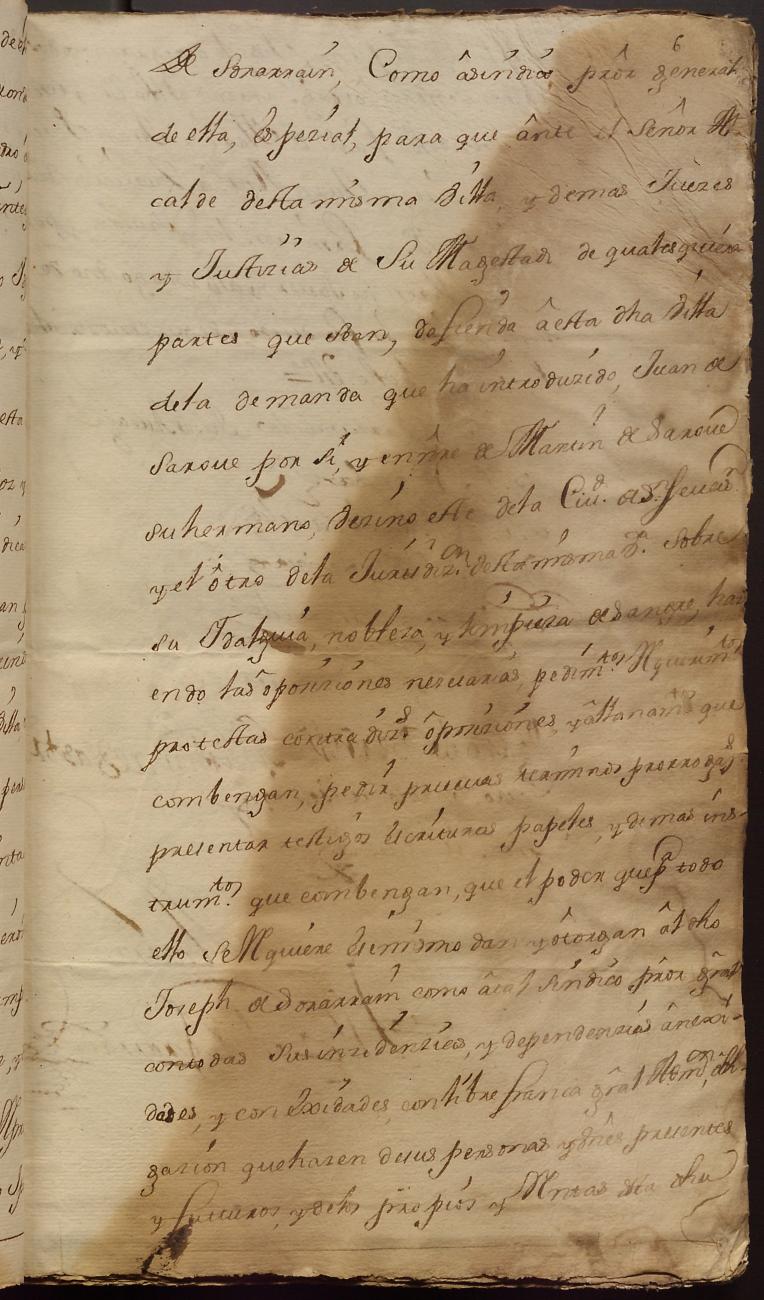 6
de Sorarrain, Como âsindico prôr general
de ella, especial, para que ânte el Señor Al-
calde desta misma Villa, y demas Juezes
y Justizias de Su Magestad de qualesquiera
partes que sean, defienda âesta dha Villa
dela demanda que ha introduzido, Juan de
Sarove por si, y en nre de Martin de Sarove
su hermano, vezino este dela Ciud. de S.
y el ôtro dela Jurisdizon. desta misma Va. sobre
su Idalguia, nobleza, y limpieza de sangre, hazi
endo las ôposiziones nezesarias pedimtos. Rquerimtos
protestas contradizs. ôposiziones, y âllanamos que
combengan, pedir pruevas terminos prorrogas
presentar testigos escrituras papeles, y demas ins-
trumtos. que combengan, que el poder que pa todo
ello se Rquiere esemismo dan y ôtorgan âl dho
Joseph de Sorarrain como âtal sindico prôr gral
contodas sus inzidenzias, y dependenzias ânexi-
dades, y conexidades, con libre franca gral Admon, obli-
gazion que hazen desus personas y vienes presentes
y futuros, y delos propios y Rntas desta dha